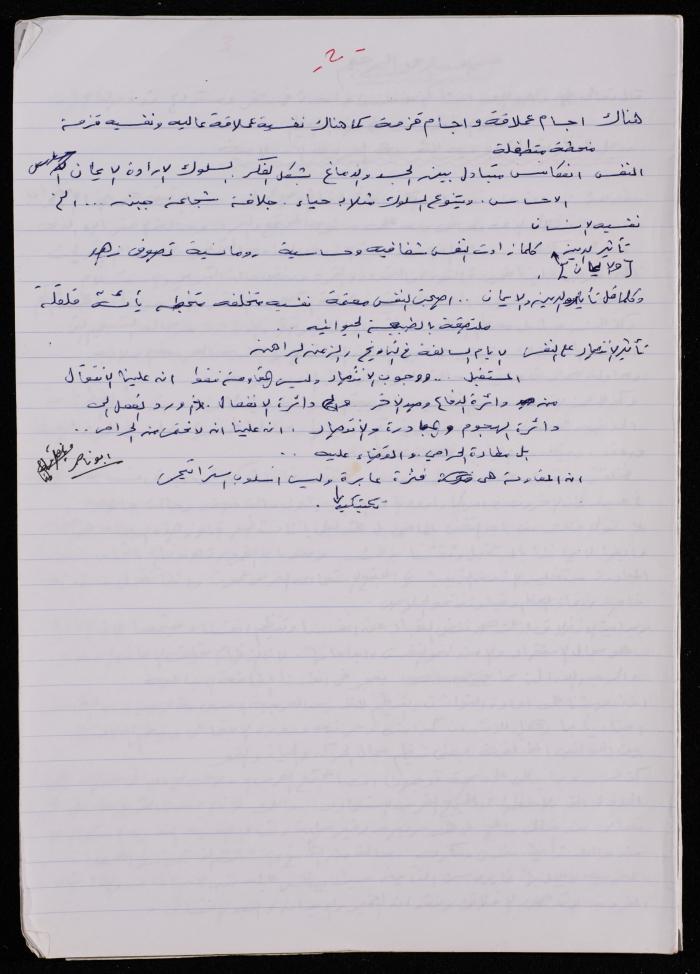 - 2 -
هناك اجسام عملاقة واجسام قزمة كما هناك نفسية عملاقة عاليه ونفسيه قزمة
منحطة متطفلة
النفس انعكاس متبادل بين الجسد والدماغ بشكل الفكر. السلوك الارادة الايمان
الاحساس. ويتنوع السلوك مثلا: حياء. جلافة شجاعة جبن ... الخ
نفسية الانسان
تأثير الدين كلما زادت النفس شفافيه وحساسية رومانسية تصوف زهد
[والايمان]
وكلما قل تأثير الدين والايمان .. اصبحت النفس معتمة نفسيه متخلفه منحطه يائسة قلقة
ملتصقة بالطبيعة الحيوانيه ..
تأثير الانتصار على النفس الايام السالفة في التاريخ والزمن الراهن
المستقبل ... ووجوب الانتصار وليس المقاومة فقط انه علينا الانتقال
من دائرة الدفاع وصد الاخر الى دائرة الانفعال. ورد الفعل الى
دائرة الهجوم والمبادرة والانتصار. ان علينا ان لا نختبئ من الحرامي ..
بل مطاردة الحرامي والقضاء عليه ..
ان المقاومة هي فترة عابرة وليس اسلوب استراتيجي
تكتيكية.
ابو ناصر